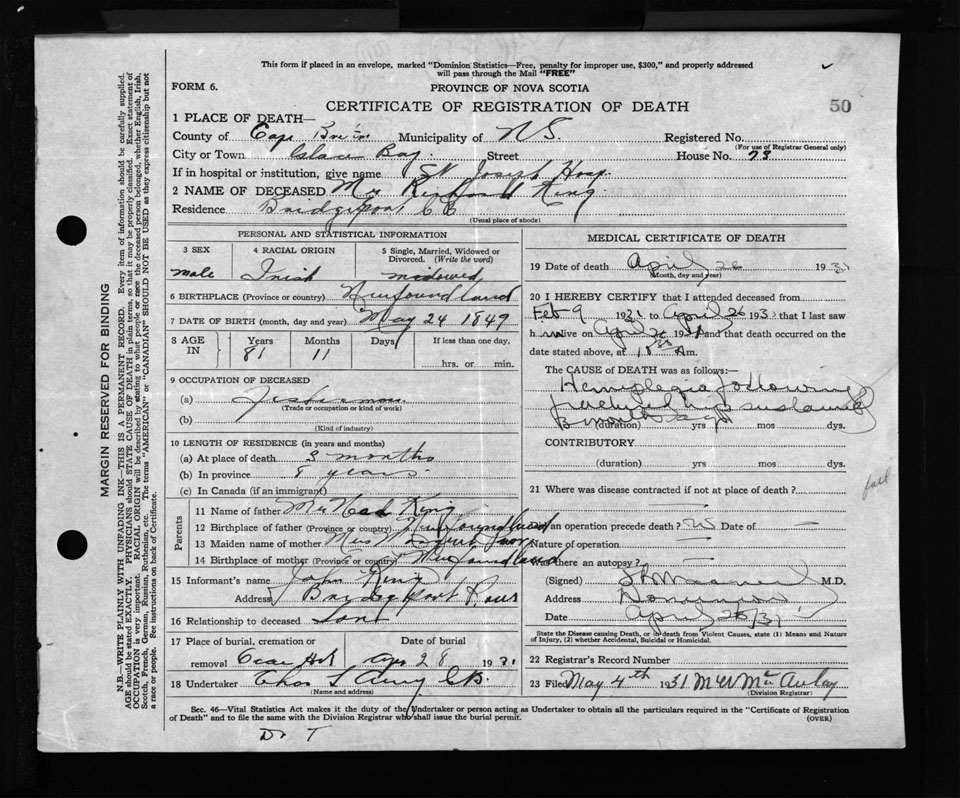 This form if placed in an envelope, marked "Dominion Statistics—Free, penalty for improper use, $300," and properly addressed
will pass through the Mail "FREE"
FORM 6.
PROVINCE OF NOVA SCOTIA
CERTIFICATE OF REGISTRATION OF DEATH
50
1 PLACE OF DEATH—
County of Cape Breton Municipality of N S. Registered No.
(For use of Registrar General only)
City or Town Glace Bay. Street House No. 73
If in hospital or institution, give name St Joseph Hosp.
2 NAME OF DECEASED Mr Richard King
Residence Bridgeport C B
(Usual place of abode)
PERSONAL AND STATISTICAL INFORMATION
3 SEX
male
4 RACIAL ORIGIN
Irish
5 Single, Married, Widowed or
Divorced. (Write the word)
widowed
6 BIRTHPLACE (Province or country) Newfoundland
7 DATE OF BIRTH (month, day and year) May 24 1849
8 AGE
IN
Years
81
Months
11
Days
If less than one day.
hrs. or min.
9 OCCUPATION OF DECEASED
(a)
(Trade or occupation or kind of work)
(b)
(Kind of industry)
10 LENGTH OF RESIDENCE (in years and months)
(a) At place of death 3 months
(b) In province 8 years
(c) In Canada (if an immigrant)
Parents
11 Name of father Mr King
12 Birthplace of father (Province or country) Newfoundland
13 Maiden name of mother Mrs
14 Birthplace of mother (Province or country) Newfoundland
15 Informant's name John King
Address Bridgeport
16 Relationship to deceased Son
17 Place of burial, cremation or
removal
Date of burial
Apr 28 1931
18 Undertaker Chas
(Name and address)
MEDICAL CERTIFICATE OF DEATH
19 Date of death April 26 1931
(Month, day and year)
20 I HEREBY CERTIFY that I attended deceased from
Feb 9 1931 to April 26 193 that I last saw
h im alive April 26 1931 and that death occurred on
the date stated above, at Am.
The CAUSE of DEATH was as follows:—
Hemiplegia following
(duration) yrs mos dys.
CONTRIBUTORY
(duration) yrs mos dys.
21 Where was disease contracted if not at place of death?
fall
an operation precede death? No Date of —
Nature of operation —
was there an autopsy? —
(Signed) M.D.
Address Dominion
Date April 26/31
State the Disease causing Death, or in death from Violent Causes, state (1) Means and Nature
of Injury, (2) whether Accidental, Suicidal or Homicidal.
22 Registrar's Record Number
23 Filed May 4th 1931 M W McAulay
(Division Registrar)
Sec. 46—Vital Statistics Act makes it the duty of the Undertaker or person acting as Undertaker to obtain all the particulars required in the "Certificate of Registration
of Death" and to file the same with the Division Registrar who shall issue the burial permit.
(OVER)
Dr T
MARGIN RESERVED FOR BINDING
N.B.—WRITE PLAINLY WITH UNFADING INK—THIS IS A PERMANENT RECORD. Every item of information should be carefully supplied.
AGE should be stated EXACTLY. PHYSICIANS should STATE CAUSE OF DEATH in plain terms, so that it may be properly classified. Exact statement of
OCCUPATION is very important. RACIAL ORIGIN will be described by stating to what people or race the deceased person belonged, whether English, Irish,
Scotch, French, German, Russian, Ruthenian, etc. The terms "AMERICAN" or "CANADIAN" SHOULD NOT BE USED as they express citizenship but not
a race or people. See instructions on back of Certificate.